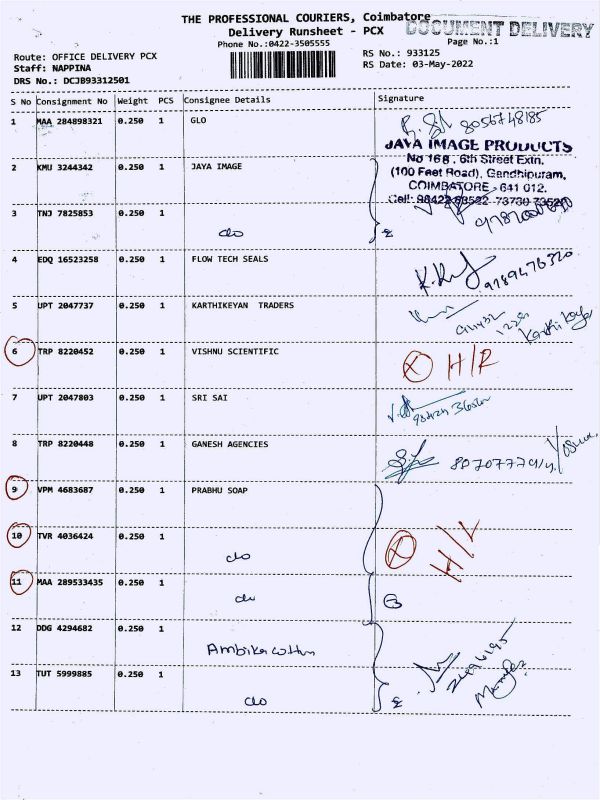 THE PROFESSIONAL COURIERS, Coimbatore
DOCUMENT DELIVERY
Delivery Runsheet - PCX
Phone No.:0422-3505555
Page No.:1
Route: OFFICE DELIVERY PCX
RS No.: 933125
Staff: NAPPINA
RS Date: 03-May-2022
DRS No.: DCJB93312501
S No Consignment No Weight PCS Consignee Details Signature
1 MAA 284898321 0.250 1 GLO 8056748185
JAYA IMAGE PRODUCTS
No 16B, 6th Street Extn,
2 KMU 3244342 0.250 1 JAYA IMAGE (100 Feet Road), Gandhipuram,
COIMBATORE - 641 012.
Cell: 98422 63522 73730 73520
3 TNJ 7825853 0.250 1
clo
4 EDQ 16523258 0.250 1 FLOW TECH SEALS 9789476320
5 UPT 2047737 0.250 1 KARTHIKEYAN TRADERS
6 TRP 8220452 0.250 1 VISHNU SCIENTIFIC H/R
7 UPT 2047803 0.250 1 SRI SAI
8 TRP 8220448 0.250 1 GANESH AGENCIES
9 VPM 4683687 0.250 1 PRABHU SOAP
10 TVR 4036424 0.250 1 H/L
clo
11 MAA 289533435 0.250 1
clo 3
12 DDG 4294682 0.250 1
Ambika cottn
13 TUT 5999885 0.250 1
clo